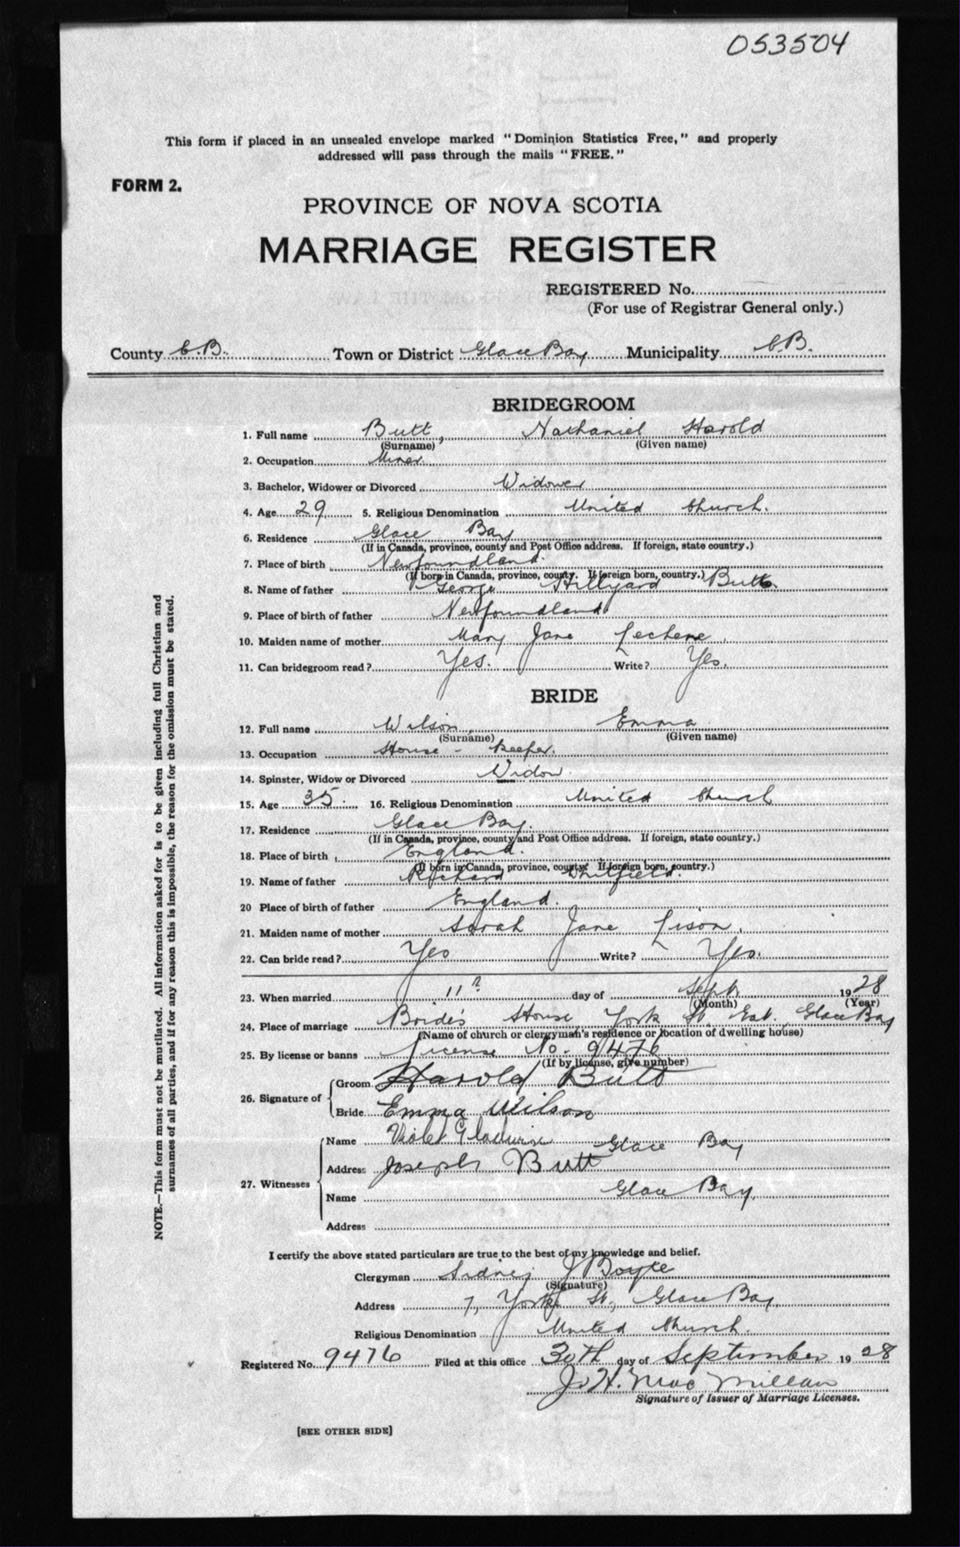 053504
This form if placed in an unsealed envelope marked "Dominion Statistics Free," and properly
addressed will pass through the mails "FREE."
FORM 2.
PROVINCE OF NOVA SCOTIA
MARRIAGE REGISTER
REGISTERED No.
(For use of Registrar General only.)
County C.B. Town or District Glace Bay Municipality C.B.
BRIDEGROOM
1. Full name Butt, Nathaniel Harold
(Surname) (Given name)
2. Occupation Miner
3. Bachelor, Widower or Divorced Widower
4. Age 29 5. Religious Denomination United Church.
6. Residence Glace Bay
(If in Canada, province, county and Post Office address. If foreign, state country.)
7. Place of birth Newfoundland.
(If born in Canada, province, county. If foreign born, country.)
8. Name of father George Hillyard Butt
9. Place of birth of father Newfoundland
10. Maiden name of mother Mary Jane
11. Can bridegroom read? Yes. Write? Yes.
BRIDE
12. Full name Wilson Emma
(Surname) (Given name)
13. Occupation House - keeper.
14. Spinster, Widow or Divorced Widow
15. Age 35. 16. Religious Denomination United Church
17. Residence Glace Bay.
(If in Canada, province, county and Post Office address. If foreign, state country.)
18. Place of birth England.
(If born in Canada, province, county. If foreign born, country.)
19. Name of father Richard
20 Place of birth of father England.
21. Maiden name of mother Sarah Jane
22. Can bride read? Yes Write? Yes.
23. When married 11th day of Sept. 1928
(Month) (Year)
24. Place of marriage Bride's House York St. East, Glace Bay
(Name of church or clergyman's residence or location of dwelling house)
25. By license or banns License No. 9476
(If by license, give number)
26. Signature of Groom Harold Butt
Bride Emma Wilson
27. Witnesses Name Violet Gladwin Glace Bay
Address Joseph Butt
Name Glace Bay.
Address
I certify the above stated particulars are true to the best of my knowledge and belief.
Clergyman Sidney J Boyce
(Signature)
Address 7, York St., Glace Bay.
Religious Denomination United Church.
Registered No. 9476 Filed at this office 30th day of September 1928
J. H. MacMillan
Signature of Issuer of Marriage Licenses.
[SEE OTHER SIDE]
NOTE.—This form must not be mutilated. All information asked for is to be given including full Christian and
surnames of all parties, and if for any reason this is impossible, the reason for the omission must be stated.